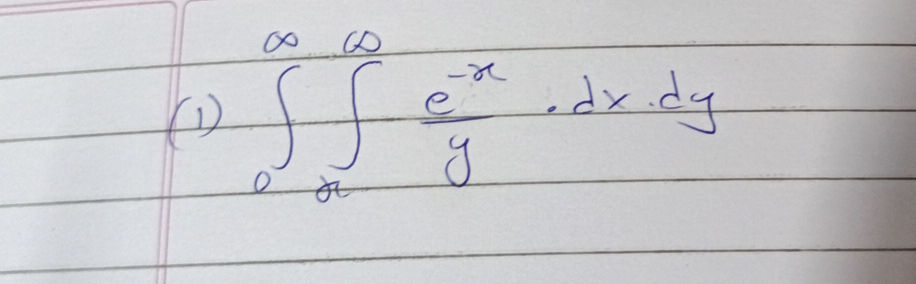 (1) ∫₀^∞ ∫ₓ^∞ e^{-x}/y . dx . dy